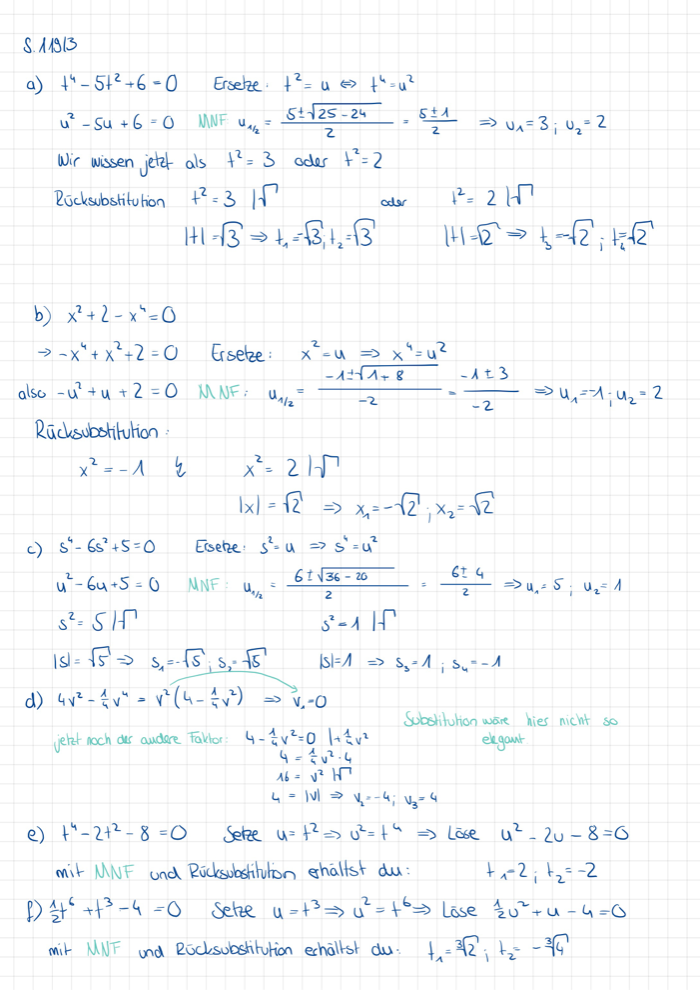 S. 119/3
a) t⁴ - 5t² + 6 = 0 Ersetze: t² = u ⇔ t⁴ = u²
u² - 5u + 6 = 0 MNF u₁/₂ = (5 ± √(25 - 24))/2 = (5 ± 1)/2 ⇒ u₁ = 3 ; u₂ = 2
Wir wissen jetzt als t² = 3 oder t² = 2
Rücksubstitution t² = 3 |√ oder t² = 2 |√
|t| = √3 ⇒ t₁ = -√3 ; t₂ = √3 |t| = √2 ⇒ t₃ = -√2 ; t₄ = √2
b) x² + 2 - x⁴ = 0
→ -x⁴ + x² + 2 = 0 Ersetze: x² = u ⇒ x⁴ = u²
also -u² + u + 2 = 0 MNF: u₁/₂ = (-1 ± √(1 + 8))/-2 = (-1 ± 3)/-2 ⇒ u₁ = -1 ; u₂ = 2
Rücksubstitution:
x² = -1 ↯ x² = 2 |√
|x| = √2 ⇒ x₁ = -√2 ; x₂ = √2
c) s⁴ - 6s² + 5 = 0 Ersetze: s² = u ⇒ s⁴ = u²
u² - 6u + 5 = 0 MNF: u₁/₂ = (6 ± √(36 - 20))/2 = (6 ± 4)/2 ⇒ u₁ = 5 ; u₂ = 1
s² = 5 |√ s² = 1 |√
|s| = √5 ⇒ s₁ = -√5 ; s₂ = √5 |s| = 1 ⇒ s₃ = 1 ; s₄ = -1
d) 4v² - ¼v⁴ = v²(4 - ¼v²) ⇒ v₁ = 0
Substitution wäre hier nicht so
elegant
jetzt noch der andere Faktor: 4 - ¼v² = 0 |+¼v²
4 = ¼v² ·4
16 = v² |√
4 = |v| ⇒ v₂ = -4 ; v₃ = 4
e) t⁴ - 2t² - 8 = 0 Setze u = t² ⇒ u² = t⁴ ⇒ Löse u² - 2u - 8 = 0
mit MNF und Rücksubstitution erhältst du: t₁ = 2 ; t₂ = -2
f) ½t⁶ + t³ - 4 = 0 Setze u = t³ ⇒ u² = t⁶ ⇒ Löse ½u² + u - 4 = 0
mit MNF und Rücksubstitution erhältst du: t₁ = ∛2 ; t₂ = -∛4